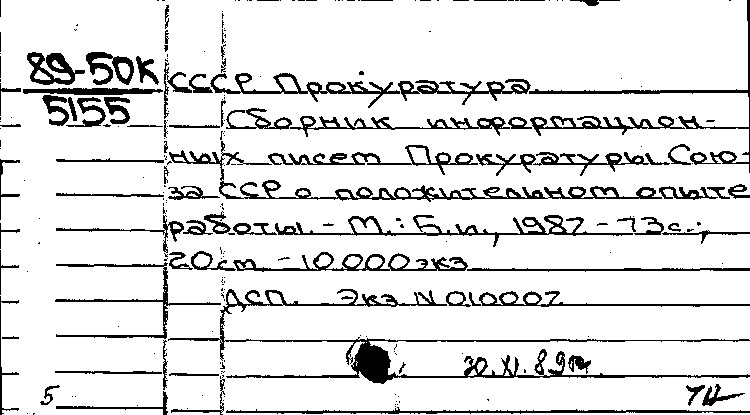 89-50К
5155
СССР. Прокуратура.
Сборник информацион-
ных писем Прокуратуры Сою-
за ССР о положительном опыте
работы. - М.: Б.и., 1987 - 73с.;
20см. - 10.000экз
ДСП. Экз. N 010007
30.XI.89г
5